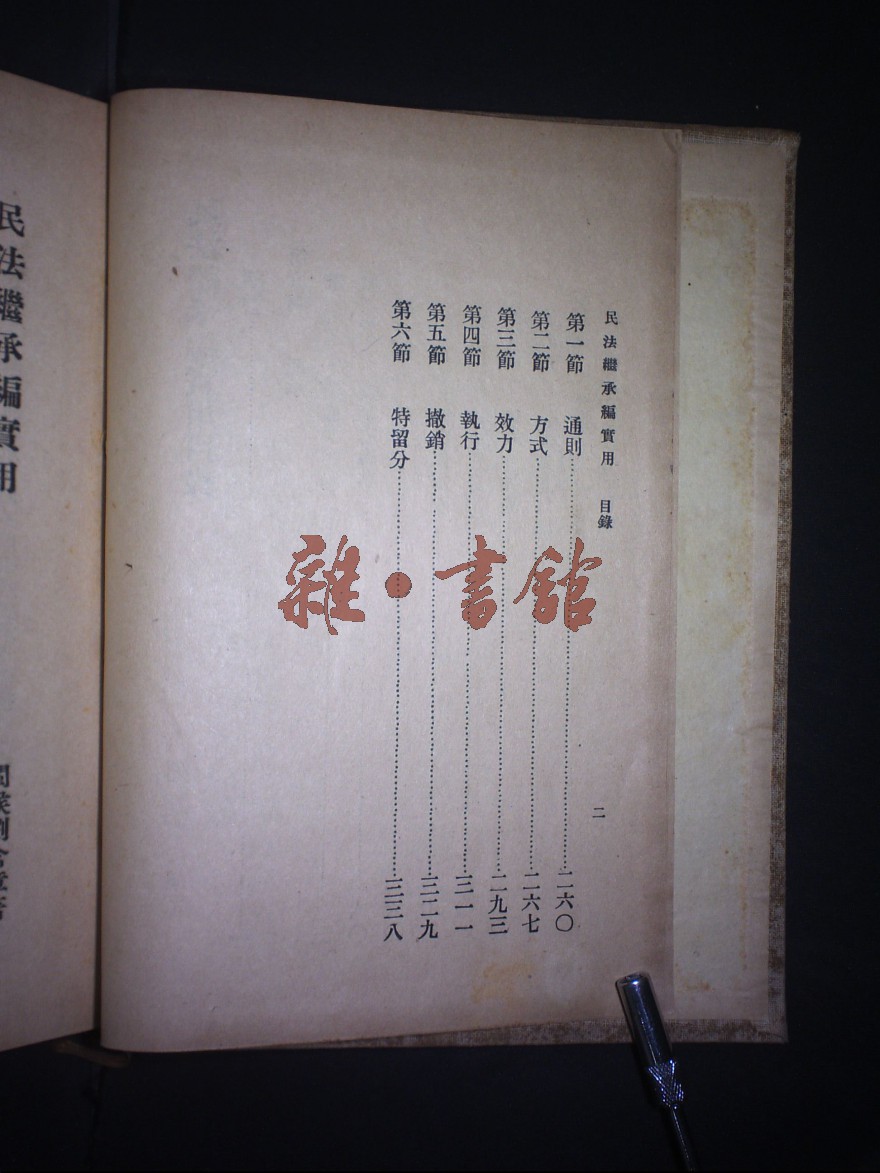 民法繼承編實用　目錄　二
第一節　通則……二六〇
第二節　方式……二六七
第三節　效力……二九三
第四節　執行……三一一
第五節　撤銷……三二九
第六節　特留分……三三八
雜•書館
民法繼承編實用